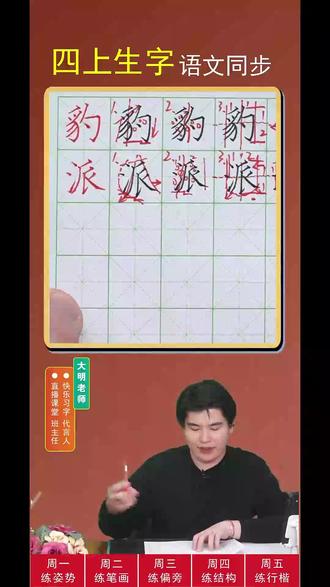 四上生字 语文同步
豹 豹 豹 豹
派 派 派 派
大明老师
快乐习字 代言人
直播课堂 班主任
周一 周二 周三 周四 周五
练姿势 练笔画 练偏旁 练结构 练行楷